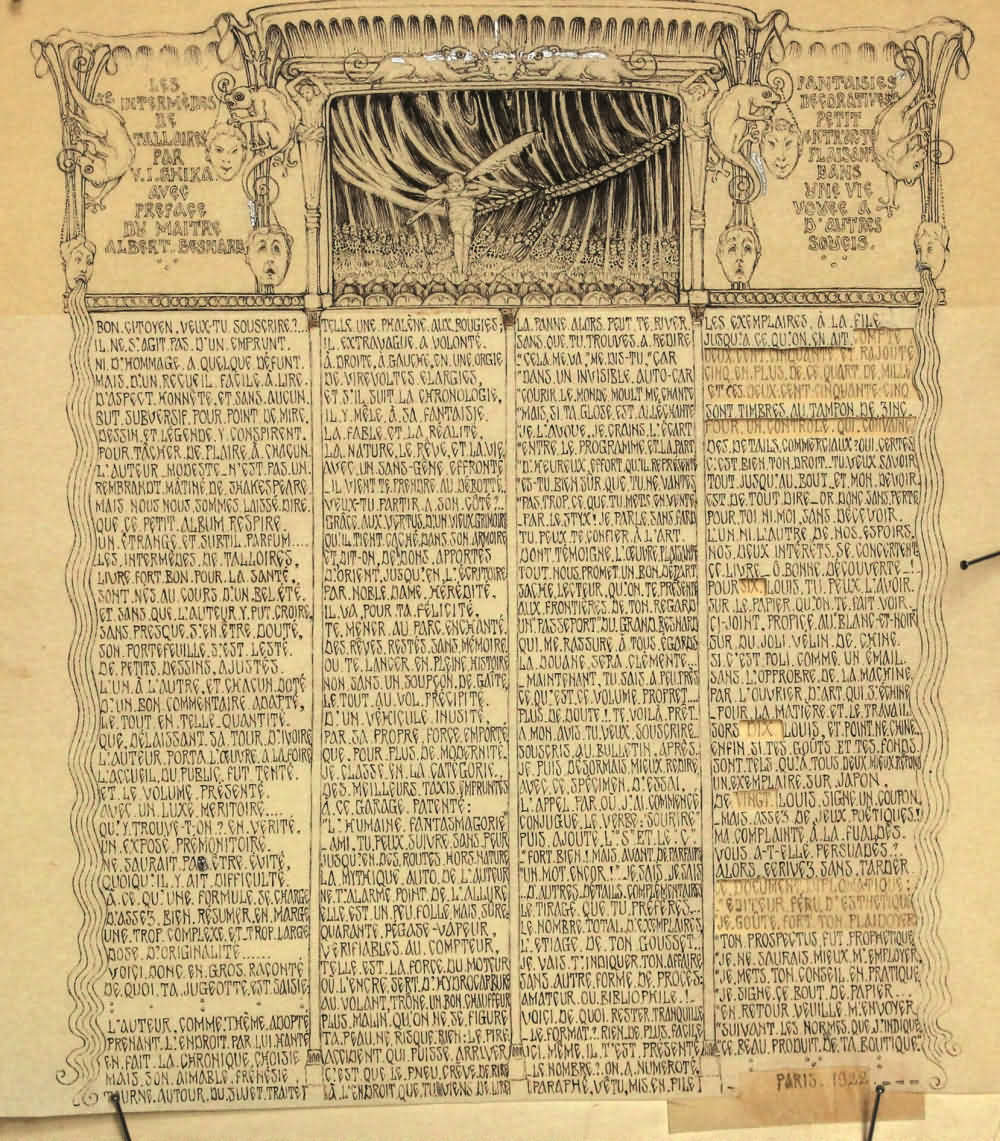 LES
INTERMÈDES
DE
TALLOIRES
PAR
V. I. GHIKA
AVEC
PREFACE
DU MAITRE
ALBERT. BESNARD
FANTAISIES
DECORATIVES
PETIT
ENTR'ACTE
PLAISANT
DANS
UNE VIE
VOUEE A
D'AUTRES
SOUCIS.
BON. CITOYEN. VEUX-TU SOUSCRIRE ?..
IL NE. S'AGIT PAS. D'UN EMPRUNT.
NI D'HOMMAGE A QUELQUE DÉFUNT.
MAIS. D'UN. RECUEIL. FACILE. À. LIRE.
D'ASPECT. HONNÊTE. ET. SANS. AUCUN.
BUT. SUBVERSIF. POUR. POINT. DE. MIRE.
DESSIN. ET. LÉGENDE. Y. CONSPIRENT.
POUR. TÂCHER. DE. PLAIRE. À. CHACUN.
L'AUTEUR. MODESTE. N'EST. PAS. UN.
REMBRANDT. MÂTINÉ. DE. SHAKESPEARE.
MAIS NOUS NOUS. SOMMES. LAISSÉ. DIRE.
QUE. CE. PETIT. ALBUM. RESPIRE.
UN. ÉTRANGE. ET. SUBTIL. PARFUM....
LES. INTERMÈDES. DE. TALLOIRES,
LIVRE. FORT. BON. POUR. LA. SANTÉ,
SONT. NÉS. AU. COURS. D'UN. BEL. ÉTÉ.
ET. SANS. QUE. L'AUTEUR. Y. PUT. CROIRE,
SANS. PRESQUE. S'EN. ÊTRE. DOUTÉ,
SON. PORTEFEUILLE. S'EST. LESTÉ.
DE. PETITS. DESSINS. AJUSTÉS.
L'UN. À. L'AUTRE. ET. CHACUN. DOTÉ
D'UN. BON. COMMENTAIRE. ADAPTÉ,
LE. TOUT. EN. TELLE. QUANTITÉ.
QUE, DÉLAISSANT. SA. TOUR. D'IVOIRE
L'AUTEUR. PORTA. L'ŒUVRE. A. LA. FOIRE
L'ACCUEIL. DU. PUBLIC. FUT. TENTÉ.
ET. LE. VOLUME. PRÉSENTÉ.
AVEC. UN. LUXE. MÉRITOIRE....
QU'Y. TROUVE-T-ON ? EN. VÉRITÉ.
UN. EXPOSÉ. PRÉMONITOIRE.
NE. SAURAIT. PAS. ÊTRE. ÉVITÉ.
QUOIQU'IL. Y. AIT. DIFFICULTÉ.
À. CE. QU'UNE. FORMULE. SE. CHARGE
D'ASSEZ. BIEN. RÉSUMER. EN. MARGE
UNE. TROP. COMPLEXE. ET. TROP. LARGE
DOSE. D'ORIGINALITÉ......
VOICI. DONC. EN. GROS. RACONTÉ
DE. QUOI. TA. JUGEOTTE. EST. SAISIE
L'AUTEUR. COMME. THÈME. ADOPTE
PRENANT. L'ENDROIT. PAR. LUI. HANTÉ
EN. FAIT. LA. CHRONIQUE. CHOISIE
MAIS. SON. AIMABLE. FRÉNÉSIE
TOURNE. AUTOUR. DU. SUJET. TRAITÉ
TELLE. UNE. PHALÈNE. AUX. BOUGIES;
IL. EXTRAVAGUE. À. VOLONTÉ.
À. DROITE, À. GAUCHE, EN. UNE. ORGIE
DE. VIREVOLTES. ÉLARGIES,
ET. S'IL. SUIT. LA. CHRONOLOGIE,
IL. Y. MÊLE. À. SA. FANTAISIE.
LA. FABLE. ET. LA. RÉALITÉ.
LA. NATURE. LE. RÊVE. ET. LA. VIE
AVEC. UN. SANS-GÊNE. EFFRONTÉ
_IL VIENT. TE. PRENDRE. AU. DÉBOTTÉ.
VEUX-TU. PARTIR. A. SON. CÔTÉ ?..
GRÂCE. AUX. VERTUS. D'UN. VIEUX. GRIMOIRE
QU'IL. TIENT. CACHÉ. DANS. SON. ARMOIRE
ET. DIT-ON, DE. DONS. APPORTÉS
D'ORIENT. JUSQU'EN. L'ÉCRITOIRE
PAR. NOBLE. DAME. HÉRÉDITÉ.
IL. VA, POUR. TA. FÉLICITÉ.
TE. MENER. AU. PARC. ENCHANTÉ
DES. RÊVES. RESTÉS. SANS. MÉMOIRE
OU. TE. LANCER. EN. PLEINE. HISTOIRE
NON. SANS. UN. SOUPÇON. DE. GAÎTÉ,
LE. TOUT. AU. VOL. PRÉCIPITÉ
D'UN. VÉHICULE. INUSITÉ.
PAR. SA. PROPRE. FORCE. EMPORTÉ
QUE, POUR. PLUS. DE. MODERNITÉ.
JE. CLASSE. EN. LA. CATÉGORIE.
DES. MEILLEURS. TAXIS. EMPRUNTÉS
À. CE. GARAGE. PATENTÉ:
"L'HUMAINE. FANTASMAGORIE"
_AMI. TU. PEUX. SUIVRE. SANS. PEUR
JUSQU'EN. DES. ROUTES. HORS. NATURE
LA. MYTHIQUE. AUTO. DE. L'AUTEUR
NE. T'ALARME. POINT. DE. L'ALLURE
ELLE. EST. UN. PEU. FOLLE. MAIS. SÛRE.
QUARANTE. PÉGASE-VAPEUR,
VÉRIFIABLES. AU. COMPTEUR,
TELLE. EST. LA. FORCE. DU. MOTEUR
OÙ. L'ENCRE. SERT. D'HYDROCARBURE
AU. VOLANT. TRÔNE. UN. BON. CHAUFFEUR
PLUS. MALIN. QU'ON. NE. SE. FIGURE
TA. PEAU. NE. RISQUE. RIEN: LE. PIRE
ACCIDENT. QUI. PUISSE. ARRIVER
C'EST. QUE. LE. PNEU. CRÈVE. DE. RIRE
À. L'ENDROIT. QUE. TU. VIENS. DE. LIRE!
LA. PANNE. ALORS. PEUT. TE. RIVER.
SANS. QUE. TU. TROUVES. A. REDIRE
"CELA. ME. VA." ME. DIS-TU. "CAR
"DANS. UN. INVISIBLE. AUTO-CAR
"COURIR. LE. MONDE. MOULT. ME. CHANTE
"MAIS. SI. TA. GLOSE. EST. ALLÉCHANTE
"JE. L'AVOUE, JE. CRAINS. L'ÉCART
"ENTRE. LE. PROGRAMME. ET. LA. PART
"D'HEUREUX. EFFORT. QU'IL. REPRÉSENTE
"ES-TU. BIEN. SÛR. QUE. TU. NE. VANTES
"PAS. TROP. CE. QUE. TU. METS. EN. VENTE
_PAR. LE. STYX ! JE. PARLE. SANS. FARD
TU. PEUX. TE. CONFIER. À. L'ART.
DONT. TÉMOIGNE. L'ŒUVRE. PLAISANTE
TOUT. NOUS. PROMET. UN. BON. DÉPART
SACHE, LECTEUR, QU'ON. TE. PRÉSENTE
AUX. FRONTIÈRES. DE. TON. REGARD
UN. PASSEPORT. DU. GRAND. BESNARD
QUI. ME. RASSURE. À. TOUS. ÉGARDS
LA. DOUANE. SERA. CLÉMENTE.
_MAINTENANT. TU. SAIS. A. PEU. PRÈS
CE. QU'EST. CE. VOLUME. PROPRET....
PLUS. DE. DOUTE !. TE. VOILÀ. PRÊT.
A. MON. AVIS. TU. VEUX. SOUSCRIRE.
SOUSCRIS. AU. BULLETIN. APRÈS.
JE. PUIS. DÉSORMAIS. MIEUX. REDIRE
AVEC. CE. SPÉCIMEN. D'ESSAI.
L'APPEL. PAR. OÙ. J'AI. COMMENCÉ
CONJUGUE. LE. VERBE: "SOURIRE"
PUIS. AJOUTE. L'"S" ET. LE. "C".
"FORT. BIEN ! MAIS. AVANT. DE. PARFAIRE
"UN. MOT. ENCOR' !" JE. SAIS. JE. SAIS
..D'AUTRES. DÉTAILS. COMPLÉMENTAIRES
LE. TIRAGE. QUE. TU. PRÉFÈRES...
LE. NOMBRE. TOTAL. D'EXEMPLAIRES
L'ÉTIAGE. DE. TON. GOUSSET...
JE. VAIS. T'INDIQUER. TON. AFFAIRE
SANS. AUTRE. FORME. DE. PROCÈS.
AMATEUR. OU. BIBLIOPHILE !..
VOICI. DE. QUOI. RESTER. TRANQUILLE
_LE. FORMAT ?. RIEN. DE. PLUS. FACILE
ICI. MÊME. IL. T'EST. PRÉSENTÉ
_LE. NOMBRE ?. ON. A. NUMÉROTÉ.
PARAPHÉ, VÊTU, MIS. EN. PILE
LES. EXEMPLAIRES. À. LA. FILE
JUSQU'A. CE. QU'ON. EN. AIT. COMPTÉ
DEUX. CENT. CINQUANTE. ET. RAJOUTÉ
CINQ. EN. PLUS. DE. CE. QUART. DE. MILLE
ET. CES. DEUX. CENT. CINQUANTE-CINQ
SONT. TIMBRÉS. AU. TAMPON. DE. ZINC.
POUR. UN. CONTRÔLE. QUI. CONVAINC
DES. DÉTAILS. COMMERCIAUX ? OUI. CERTES
C'EST. BIEN. TON. DROIT. TU. VEUX. SAVOIR
TOUT. JUSQU'AU. BOUT. ET. MON. DEVOIR
EST. DE. TOUT. DIRE_OR. DONC. SANS. PERTE
POUR. TOI. NI. MOI, SANS. DÉCEVOIR.
L'UN. NI. L'AUTRE. DE. NOS. ESPOIRS.
NOS. DEUX. INTÉRÊTS. SE. CONCERTENT
CE. LIVRE_Ô. BONNE. DÉCOUVERTE_!
POUR. SIX. LOUIS. TU. PEUX. L'AVOIR.
SUR. LE. PAPIER. QU'ON. TE. FAIT. VOIR.
CI-JOINT. PROPICE. AU. BLANC-ET-NOIR
SUR. DU. JOLI. VÉLIN. DE. CHINE.
SI. C'EST. POLI. COMME. UN. ÉMAIL.
SANS. L'OPPROBRE. DE. LA. MACHINE
PAR. L'OUVRIER. D'ART. QUI. S'ÉCHINE
_POUR. LA. MATIÈRE. ET. LE. TRAVAIL.
SORS. DIX. LOUIS, ET. POINT. NE. CHINE.
ENFIN. SI. TES. GOÛTS. ET. TES. FONDS.
SONT. TELS. QU'A. TOUS. DEUX. MIEUX. RÉPOND
UN. EXEMPLAIRE. SUR. JAPON.
DE. VINGT. LOUIS. SIGNE. UN. COUPON.
_MAIS. ASSEZ. DE. JEUX. POÉTIQUES !
MA. COMPLAINTE. À. LA. FUALDÈS.
VOUS. A-T-ELLE. PERSUADÉS ?
ALORS, ÉCRIVEZ. SANS. TARDER
DOCUMENT. DIPLOMATIQUE:
"ÉDITEUR. FÉRU. D'ESTHÉTIQUE
JE. GOÛTE. FORT. TON. PLAIDOYER
"TON. PROSPECTUS. FUT. PROPHÉTIQUE
"JE. NE. SAURAIS. MIEUX. M'EMPLOYER
"JE. METS. TON. CONSEIL. EN. PRATIQUE
"JE. SIGNE. CE. BOUT. DE. PAPIER
_EN. RETOUR. VEUILLE. M'ENVOYER
"SUIVANT. LES. NORMES. QUE. J'INDIQUE
"CE. BEAU. PRODUIT. DE. TA. BOUTIQUE"
PARIS. 1922